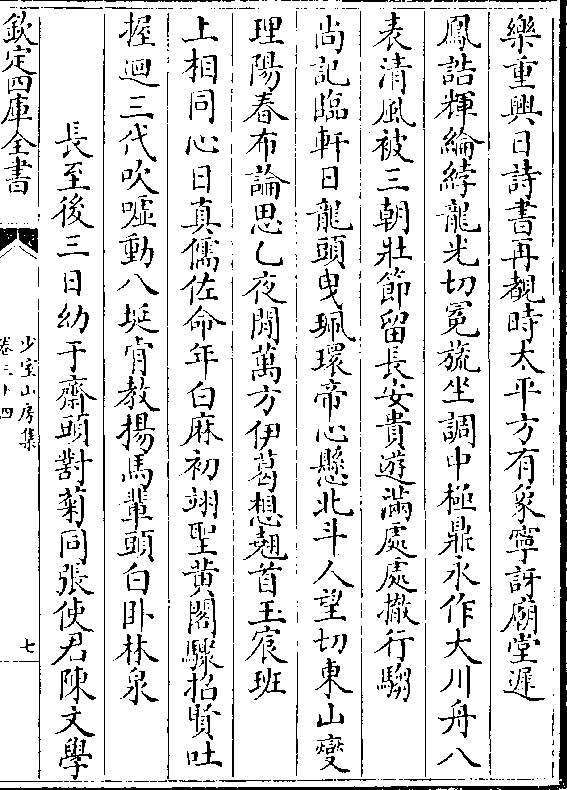 樂重興日詩書再覩時太平方有象寧訝廟堂遲
鳳誥輝綸綍龍光切冕旒坐調中極鼎永作大川舟八
表清風被三朝壯節留長安貴遊滿處處撤行騶
尚記臨軒日龍頭曳珮環帝心懸北斗人望切東山燮
理陽春布論思乙夜閒萬方伊葛想翹首玉宸班
上相同心日真儒佐命年白麻初翊聖黄閣驟招賢吐
握迴三代吹嘘動八埏肯教揚馬輩頭白卧林泉
長至後三日幼于齋頭對菊同張使君陳文學
欽定四庫全書
少室山房集
卷三十四
七